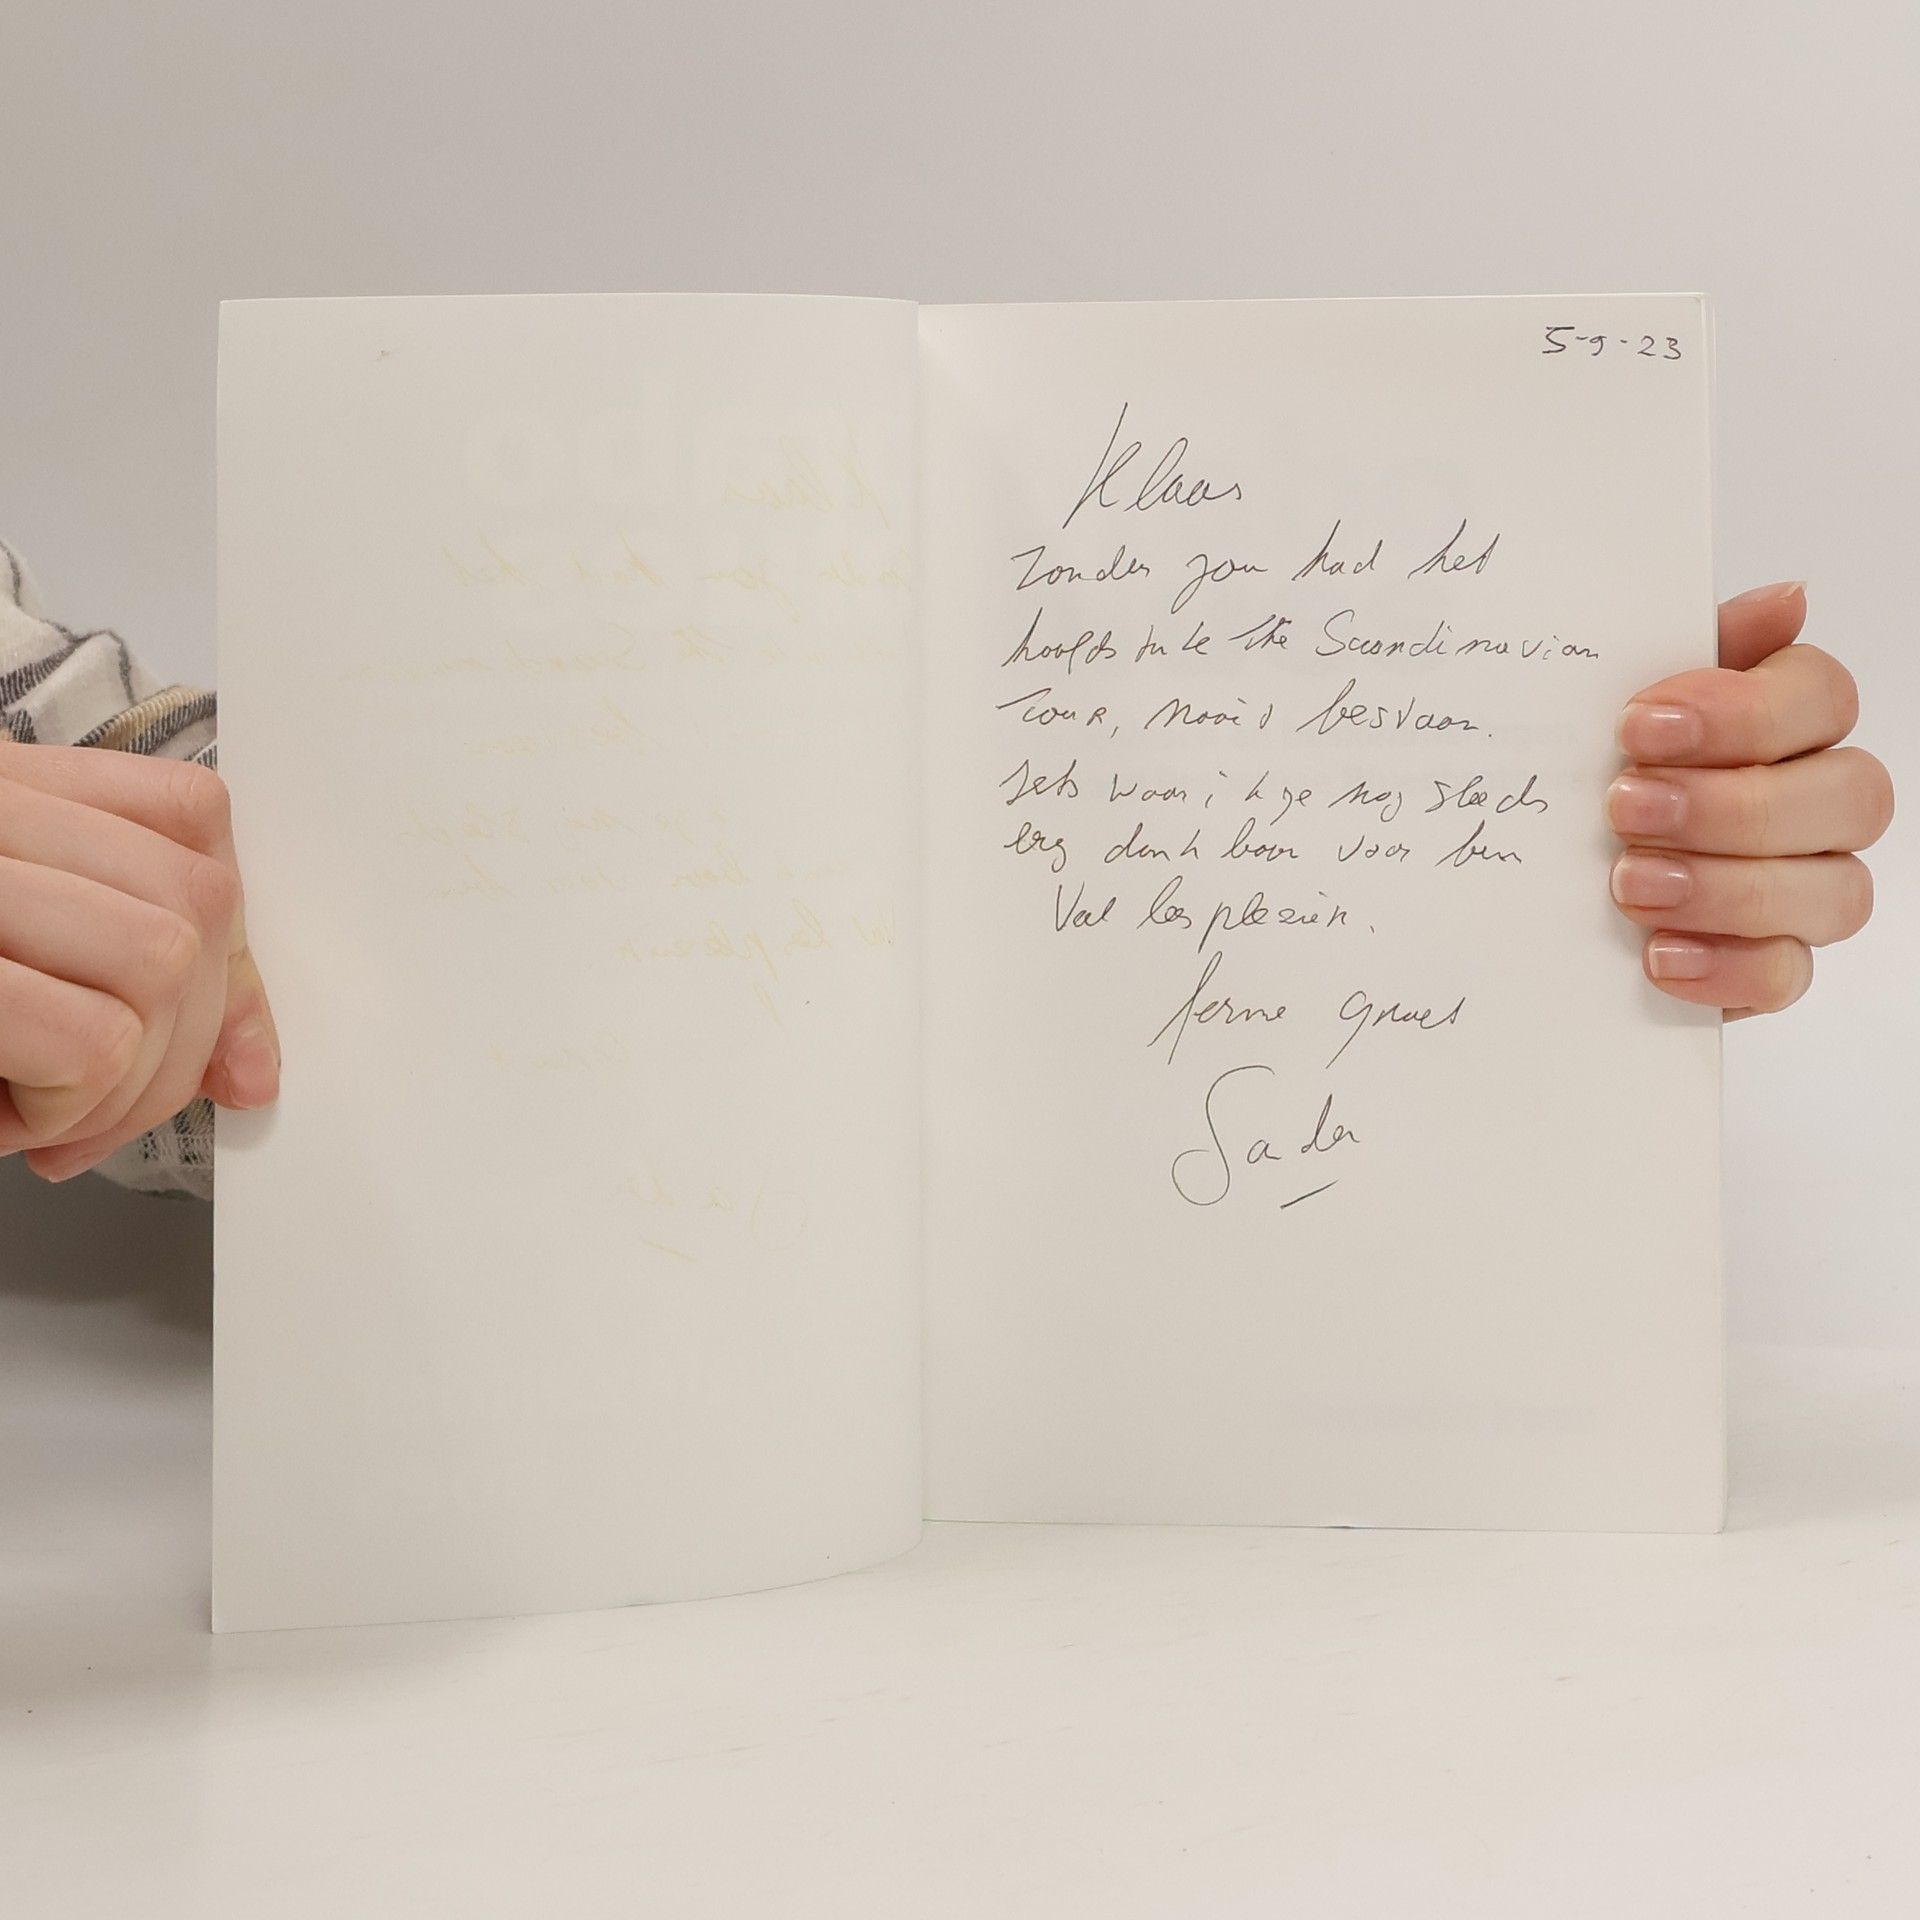 5-9-23
Klaas
Zonder jou had het
hoofdstuk the Scandinavian
Tour, nooit bestaan.
Iets waar ik je nog steeds
erg dankbaar voor ben
Veel leesplezier.
ferme groet